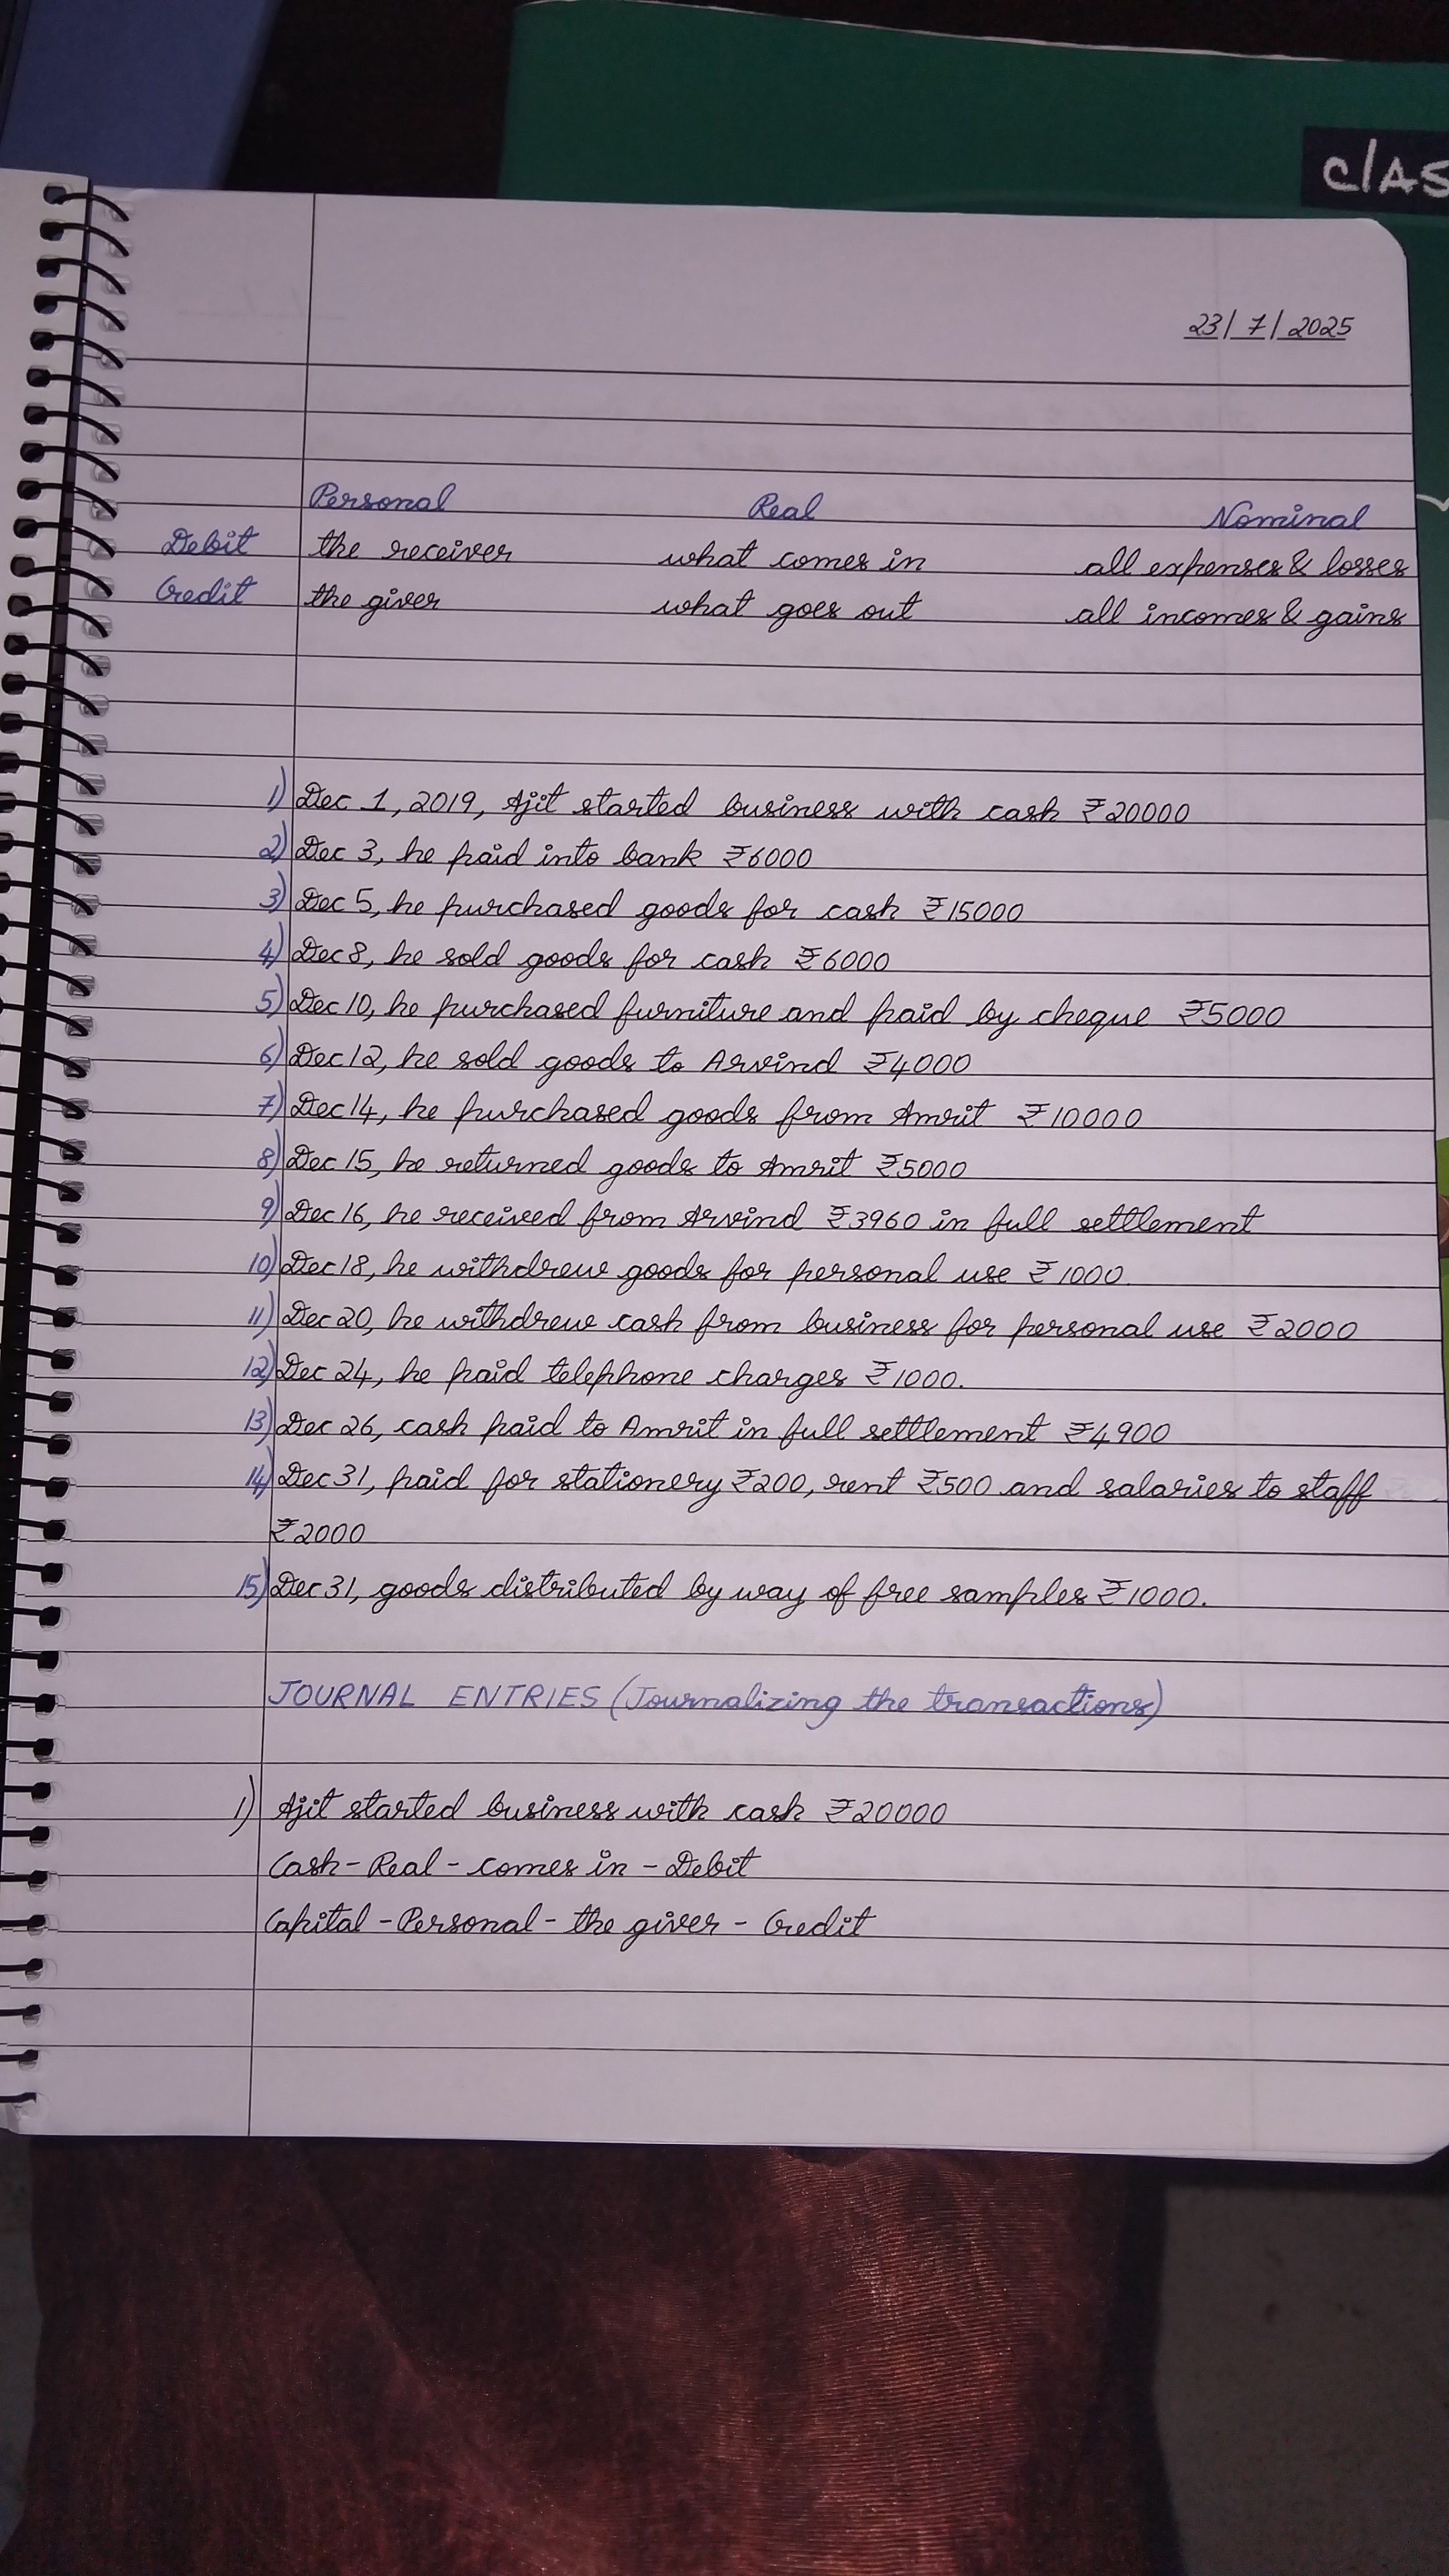 clAS
23/7/2025
Personal Real Nominal
Debit the receiver what comes in all expenses & losses
Credit the giver what goes out all incomes & gains
1) Dec 1, 2019, Ajit started business with cash ₹20000
2) Dec 3, he paid into bank ₹6000
3) Dec 5, he purchased goods for cash ₹15000
4) Dec 8, he sold goods for cash ₹6000
5) Dec 10, he purchased furniture and paid by cheque ₹5000
6) Dec 12, he sold goods to Arvind ₹4000
7) Dec 14, he purchased goods from Amrit ₹10000
8) Dec 15, he returned goods to Amrit ₹5000
9) Dec 16, he received from Arvind ₹3960 in full settlement
10) Dec 18, he withdrew goods for personal use ₹1000.
11) Dec 20, he withdrew cash from business for personal use ₹2000
12) Dec 24, he paid telephone charges ₹1000.
13) Dec 26, cash paid to Amrit in full settlement ₹4900
14) Dec 31, paid for stationery ₹200, rent ₹500 and salaries to staff
₹2000
15) Dec 31, goods distributed by way of free samples ₹1000.
JOURNAL ENTRIES (Journalizing the transactions)
1) Ajit started business with cash ₹20000
Cash - Real - comes in - Debit
Capital - Personal - the giver - Credit